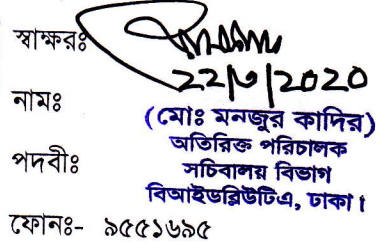 স্বাক্ষরঃ
22/৩/2020
নামঃ
(মোঃ মনজুর কাদির)
অতিরিক্ত পরিচালক
পদবীঃ
সচিবালয় বিভাগ
বিআইডব্লিউটিএ, ঢাকা।
ফোনঃ- ৯৫৫১৬৯৫